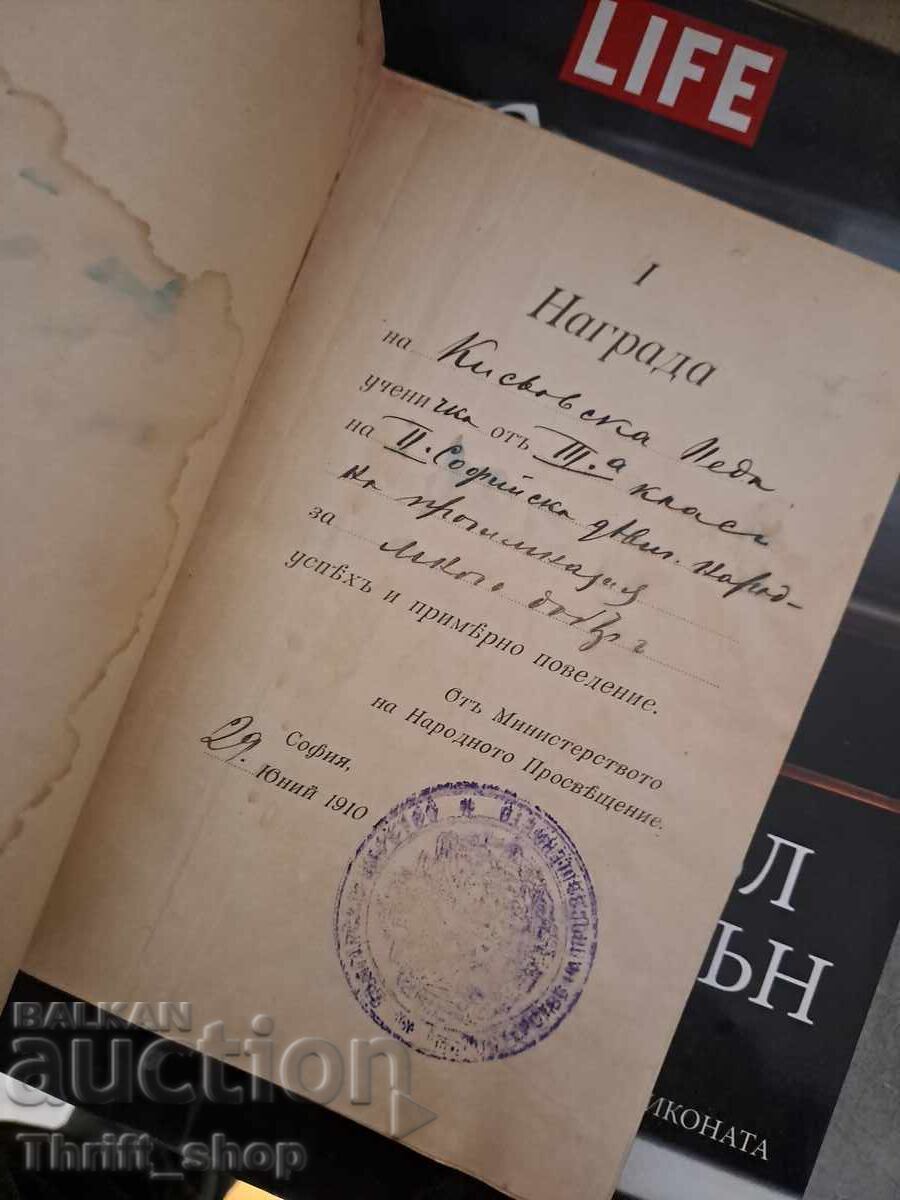 LIFE
I
Награда
на Кисьовска Неда
ученичка отъ III.а класъ
на II. Софийска дѣвич. народ-
на прогимназия
за много добръ
успѣхъ и примѣрно поведение.
Отъ Министерството
на Народното Просвѣщение.
София,
29. Юний 1910
ОЛ
ЪН
ИКОНАТА
BALKAN
auction
Thrift_shop